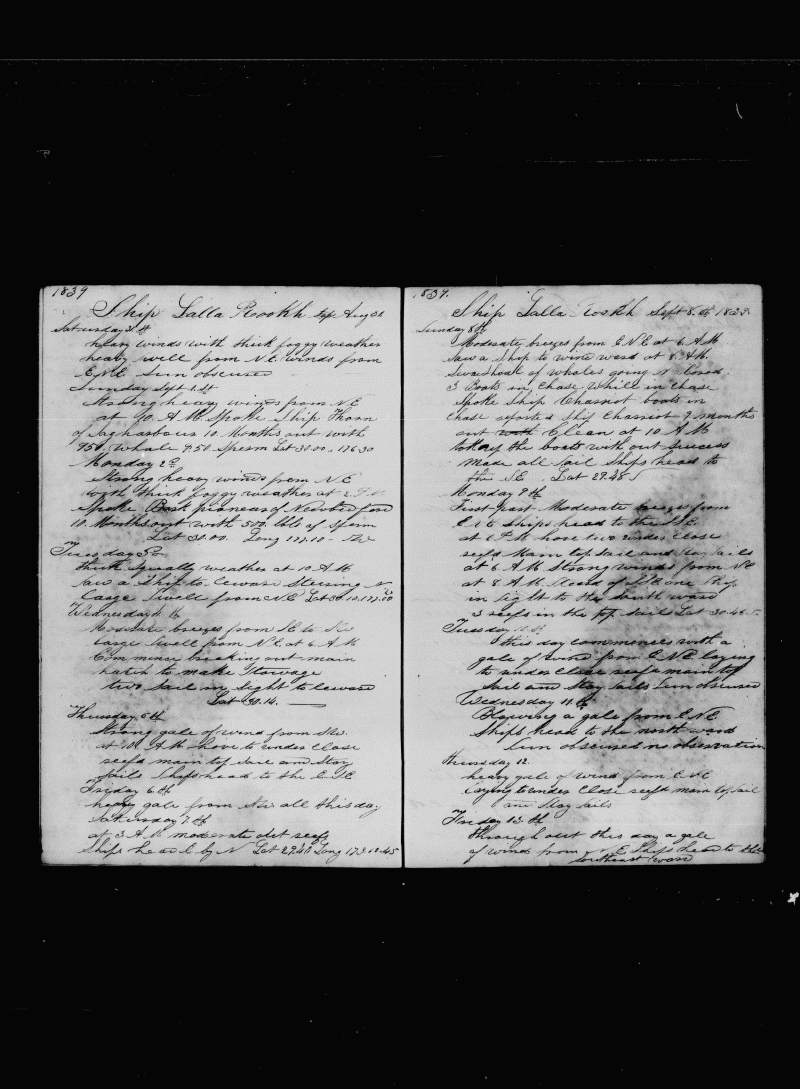 1839
Ship Lalla Rookh Aug 31
Saturday 31 st
heavy winds with thick foggy weather
heavy swell from N.E winds from
E.N.E Sun obscured
Sunday Sept 1 st
Strong heavy winds from N E
at 10 A M Spoke Ship Thorn
of Sagharbour 10 Months out with
950 Whale 950 Sperm Lat 30.00. 176.30
Monday 2
Strong heavy winds from N E
with thick foggy weather at P.M
Spoke Bark pioneer of Newbedford
10 Months out with bbls of Sperm
Lat 30.00 Long 177.10
Tuesday 3
thick Squally weather at 10 A M
Saw a Ship to leward Steering N
Large Swell from N E Lat 30.10.177.00
Wednesday 4 th
Moderate breezes from to
large Swell from N E at 6 A M
Commence breaking out main
hatch to make Stowage
two Sail in Sight to leward
Lat 30.14.
Thursday 5 th
Strong gale of wind from
at 10 A M hove to under Close
reefd main top Sail and Stay
Sails Ships head to the E S E
Friday 6 th
heavy gale from all this day
Saturday 7 th
at 3 A M moderate out reefs
Ships head E by N Lat 29.40 Long 179.10.45
1839.
Ship Lalla Rookh Sept 8 th 1839
Sunday 8 th
Moderate breezes from E N E at 6 A M
Saw a Ship to wind ward at 8 A M.
Saw a Shoal of whales going N
3 Boats in Chase. While in Chase
Spoke Ship Charriot boats in
Chase reported Ship Charriot 9 months
out with Clean at 10 A M
took up the boats with out Success
Made all Sail Ships head to
the S E Lat 29.48
Monday 9 th
First part Moderate breezes from
E N E Ships head to the
at 6 P M hove two under Close
reefd Main top Sail and Stay Sails
at 6 A M Strong winds from N E
at 8 A M one Ship
in Sight to the South ward
3 reefs in the top Sails Lat 30.46
Tuesday
this day commences with a
gale of wind from E N E laying
to under Close reefd main top
Sail and Stay Sails Sun obscured
Wednesday 11 th
Blowing a gale from E N E
Ships head to the north ward
Sun obscured no observation
Thursday 12
heavy gale of wind from E N E
laying to under Close reefd main top Sail
and Stay Sails
Friday 13 th
through out this day a gale
of wind from N E Ships head to the
Southeast ward